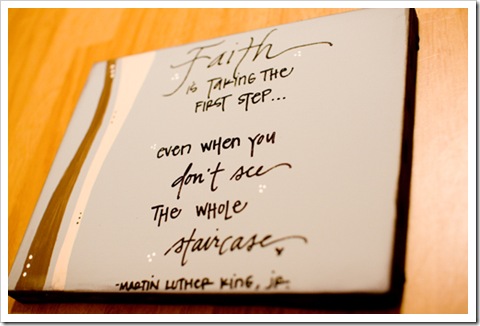 Faith
is taking the
first step...
even when you
don't see
the whole
staircase
-Martin Luther King, Jr.